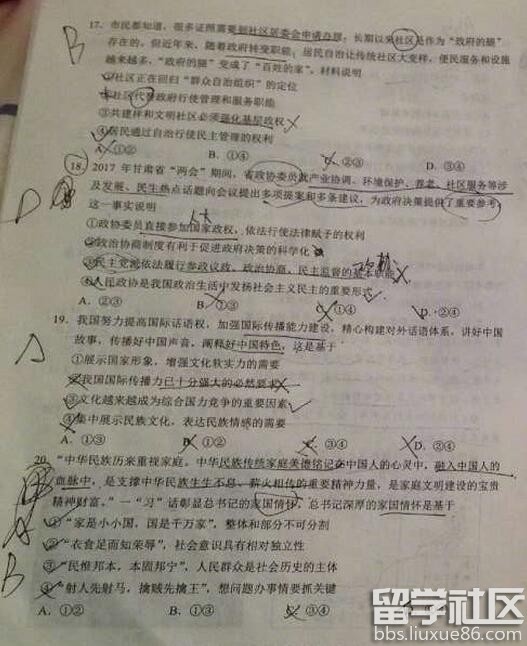 B
17. 市民都知道，很多证照需要到社区居委会申请办理，长期以来社区是作为“政府的腿”
存在的，但近年来，随着政府转变职能，居民自治让传统社区大变样，便民服务和设施
越来越多，“政府的腿”变成了“百姓的家”，材料说明
①社区正在回归“群众自治组织”的定位
②社区代替政府行使管理和服务职能
③共建祥和文明社区必须强化基层政权
④居民通过自治行使民主管理的权利
A. ①② B. ①④ C. ②③ D. ③④
D
18. 2017 年甘肃省“两会”期间，省政协委员就产业协调、环境保护、养老、社区服务等涉
及发展、民生热点话题向会议提出多项提案和多条建议，为政府决策提供了重要参考，
这一事实说明
人大
①政协委员直接参加国家政权，依法行使法律赋予的权利
②政治协商制度有利于促进政府决策的科学化
③民主党派依法履行参政议政、政治协商、民主监督的基本职能
④人民政协是我国政治生活中发扬社会主义民主的重要形式
A. ②③ B. ①③ C. ①④ D. ②④
A
19. 我国努力提高国际话语权，加强国际传播能力建设，精心构建对外话语体系，讲好中国
故事，传播好中国声音，阐释好中国特色，这是基于
①展示国家形象，增强文化软实力的需要
②我国国际传播力已十分强大的必然要求
③文化越来越成为综合国力竞争的重要因素
④集中展示民族文化，表达民族情感的需要
A. ①③ B. ①② C. ③④ D. ②④
20. “中华民族历来重视家庭，中华民族传统家庭美德铭记在中国人的心灵中，融入中国人的
血脉中，是支撑中华民族生生不息、薪火相传的重要精神力量，是家庭文明建设的宝贵
精神财富。”一“习”话彰显总书记的家国情怀，总书记深厚的家国情怀是基于
①“家是小小国，国是千万家”，整体和部分不可分割
②“衣食足而知荣辱”，社会意识具有相对独立性
③“民惟邦本，本固邦宁”，人民群众是社会历史的主体
④“射人先射马，擒贼先擒王”，想问题办事情要抓关键
B
A. ①② B. ①③ C. ③④
留学社区
bbs.liuxue86.com